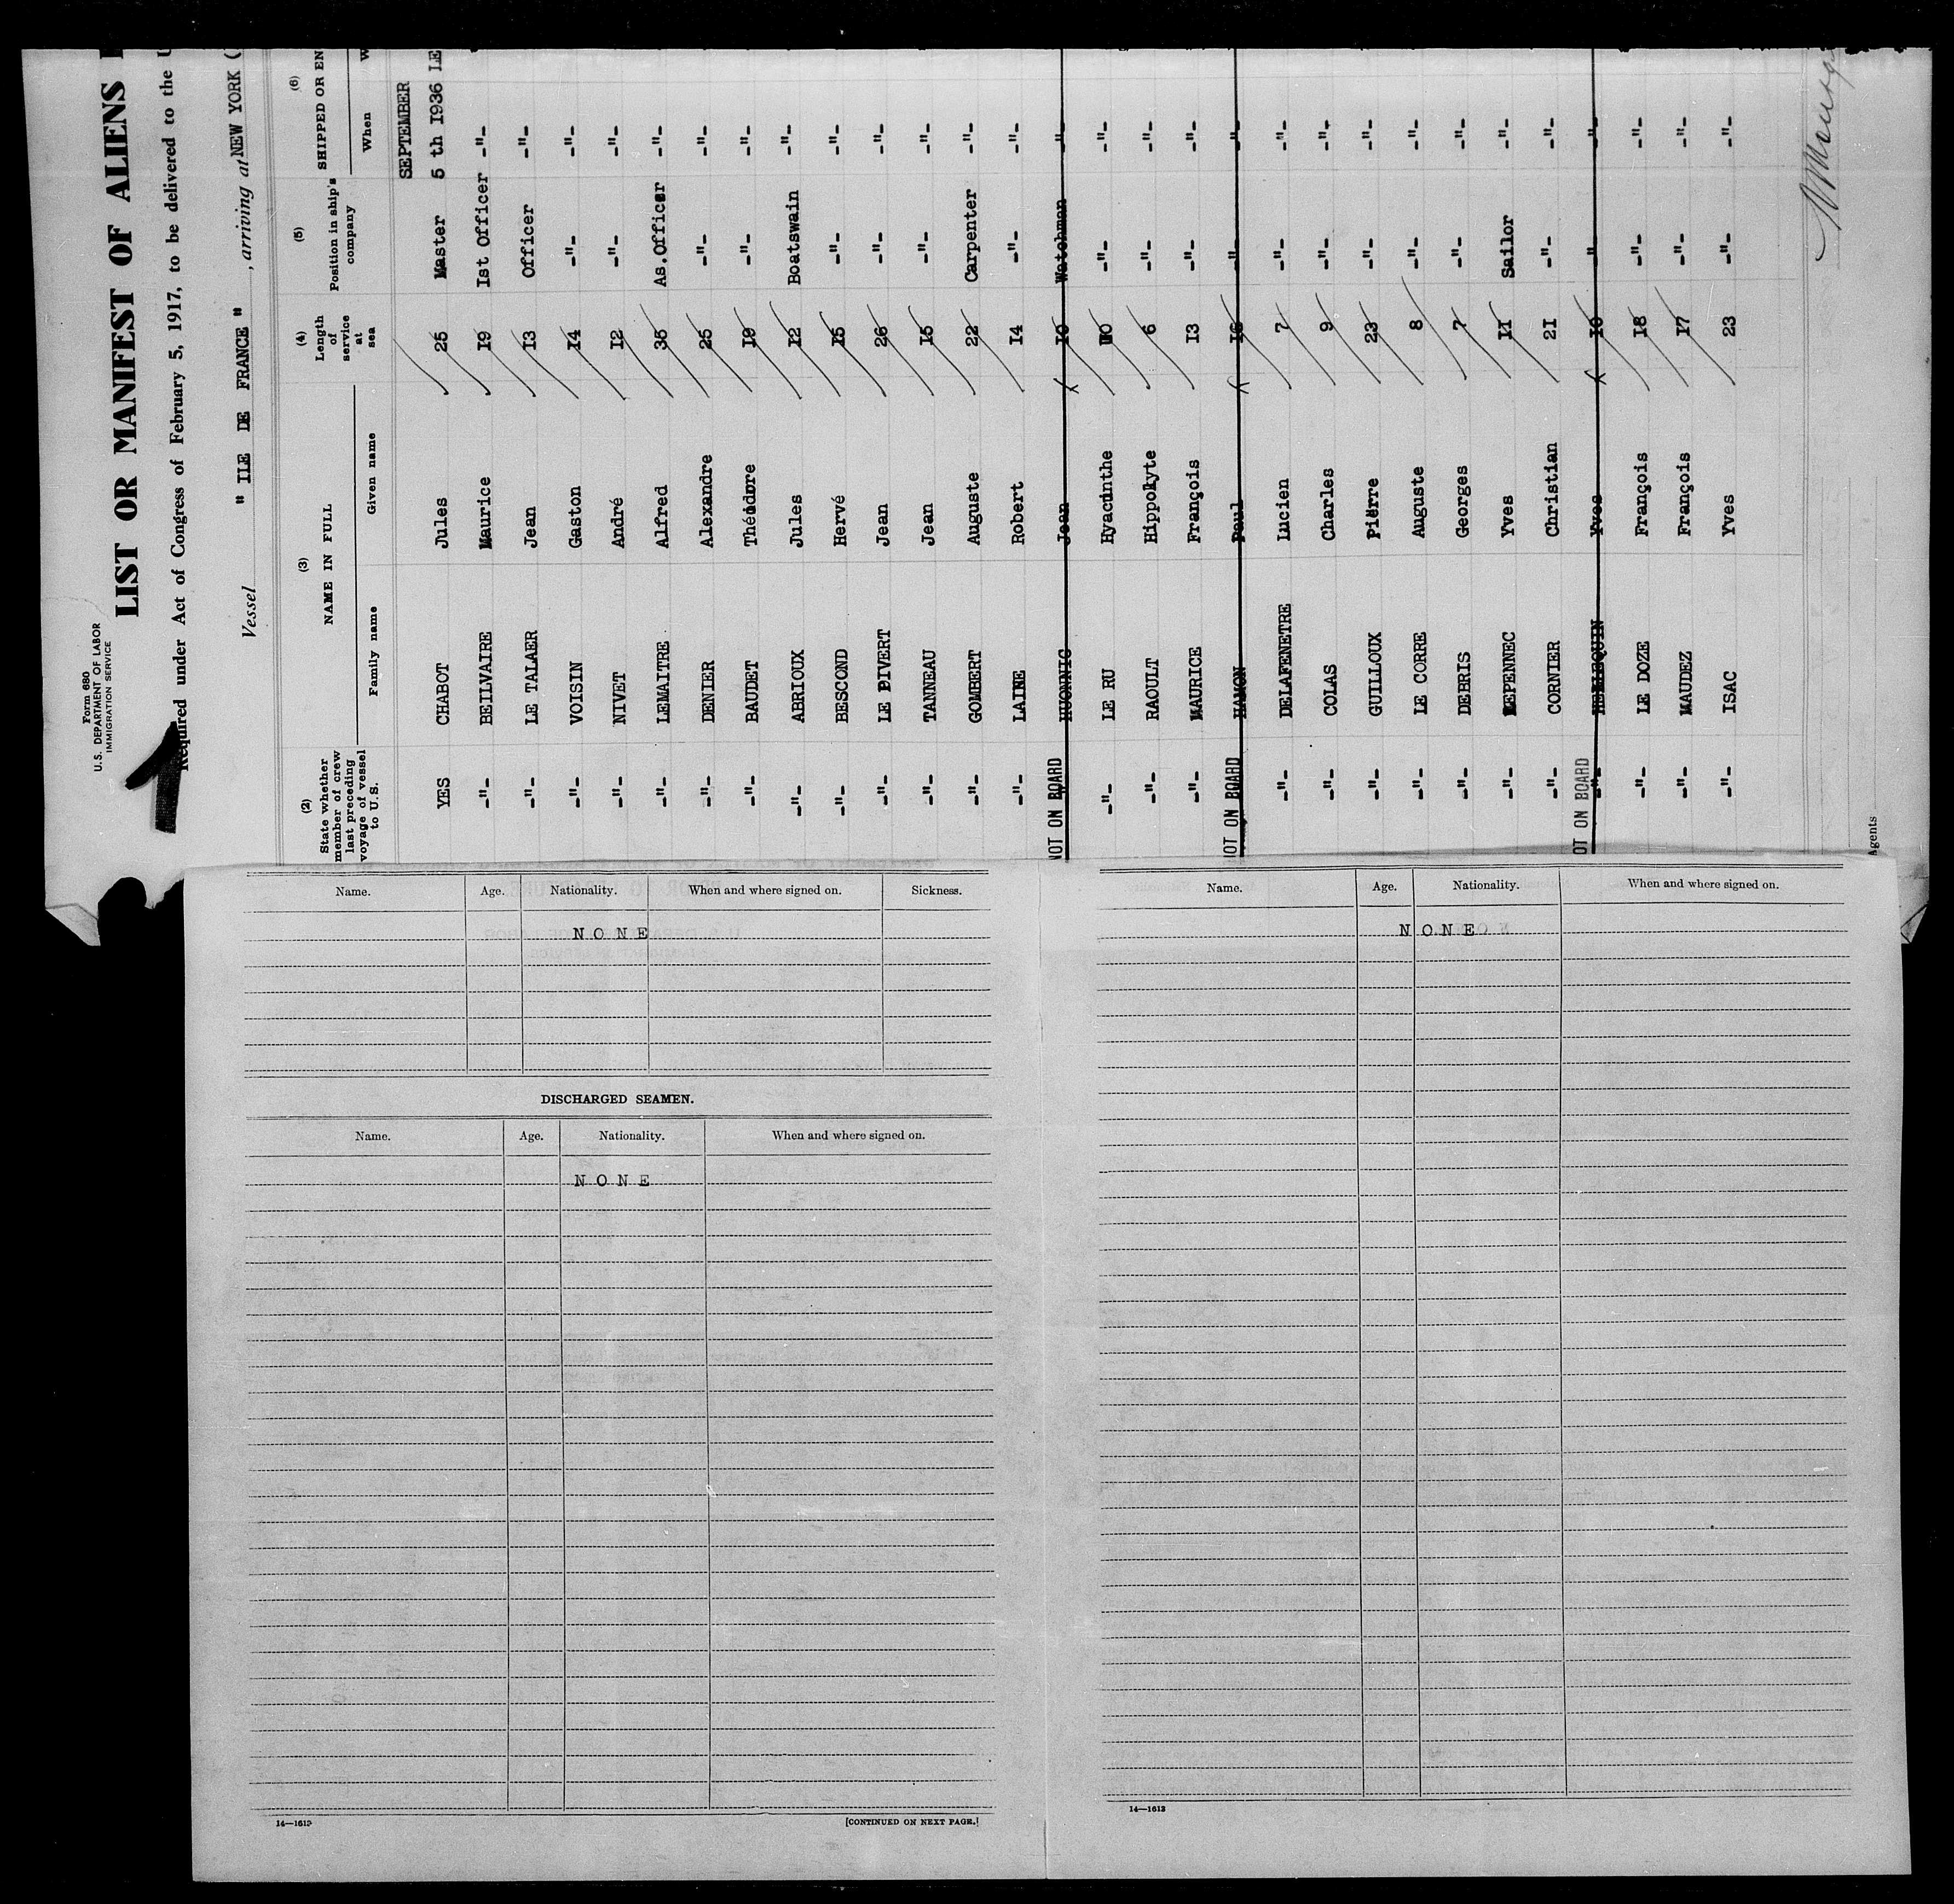 Form 680
U.S. DEPARTMENT OF LABOR
IMMIGRATION SERVICE
LIST OR MANIFEST OF ALIENS
Required under Act of Congress of February 5, 1917, to be delivered to the U
Vessel " ILE DE FRANCE " , arriving at NEW YORK (
(2) (3) (4) (5) (6)
State whether member of crew last preceding voyage of vessel to U.S. NAME IN FULL Length of service at sea Position in ship's company SHIPPED OR EN
Family name Given name When W
SEPTEMBER
YES CHABOT Jules 25 Master 5 th I936 LE
-"- BEILVAIRE Maurice I9 Ist Officer -"-
-"- LE TALAER Jean I3 Officer -"-
-"- VOISIN Gaston I4 -"- -"-
-"- NIVET André I2 -"- -"-
-"- LEMAITRE Alfred 36 As.Officer -"-
-"- DENIER Alexandre 25 -"- -"-
-"- BAUDET Théodore I9 -"- -"-
-"- ABRIOUX Jules I2 Boatswain -"-
-"- BESCOND Hervé I5 -"- -"-
-"- LE DIVERT Jean 26 -"- -"-
-"- TANNEAU Jean I5 -"- -"-
-"- GOMBERT Auguste 22 Carpenter -"-
-"- LAINE Robert I4 -"- -"-
NOT ON BOARD HUONNIC Jean I0 Watchman -"-
-"- LE RU Hyacinthe I0 -"- -"-
-"- RAOULT Hippolyte 6 -"- -"-
-"- MAURICE François I3 -"- -"-
NOT ON BOARD HAMON Paul I6 -"- -"-
-"- DELAFENETRE Lucien 7 -"- -"-
-"- COLAS Charles 9 -"- -"-
-"- GUILLOUX Pierre 23 -"- -"-
-"- LE CORRE Auguste 8 -"- -"-
-"- DEBRIS Georges 7 -"- -"-
-"- PEPENNEC Yves II Sailor -"-
-"- CORNIER Christian 2I -"- -"-
NOT ON BOARD -"- Yves I0 -"- -"-
-"- LE DOZE François I8 -"- -"-
-"- MAUDEZ François I7 -"- -"-
-"- ISAC Yves 23 -"- -"-
Agents
Name. Age. Nationality. When and where signed on. Sickness.
NONE
DISCHARGED SEAMEN.
Name. Age. Nationality. When and where signed on.
NONE
14—1613
[CONTINUED ON NEXT PAGE.]
Name. Age. Nationality. When and where signed on.
NONE
14—1613